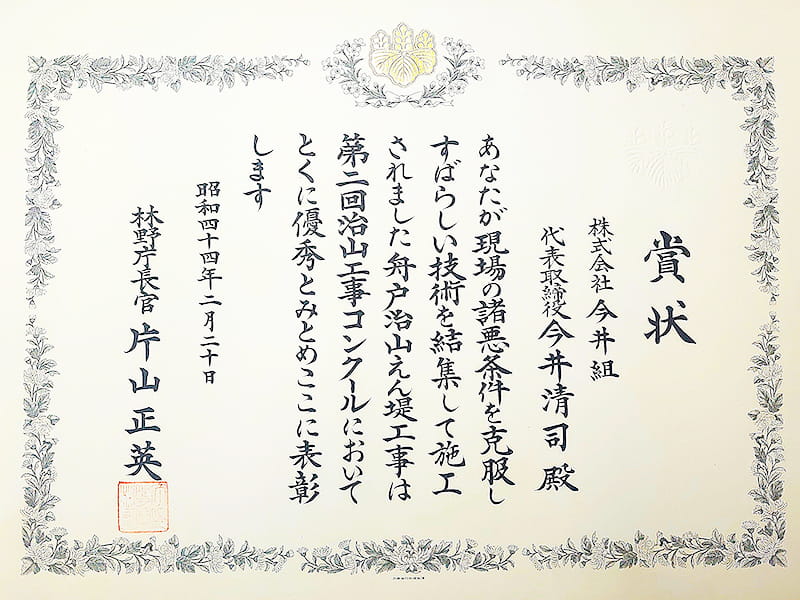 賞状
株式会社 今井組
代表取締役 今井清司 殿
あなたが現場の諸悪条件を克服し
すばらしい技術を結集して施工
されました舟戸治山えん堤工事は
第二回治山工事コンクールにおいて
とくに優秀とみとめここに表彰
します
昭和四十四年二月二十日
林野庁長官 片山正英